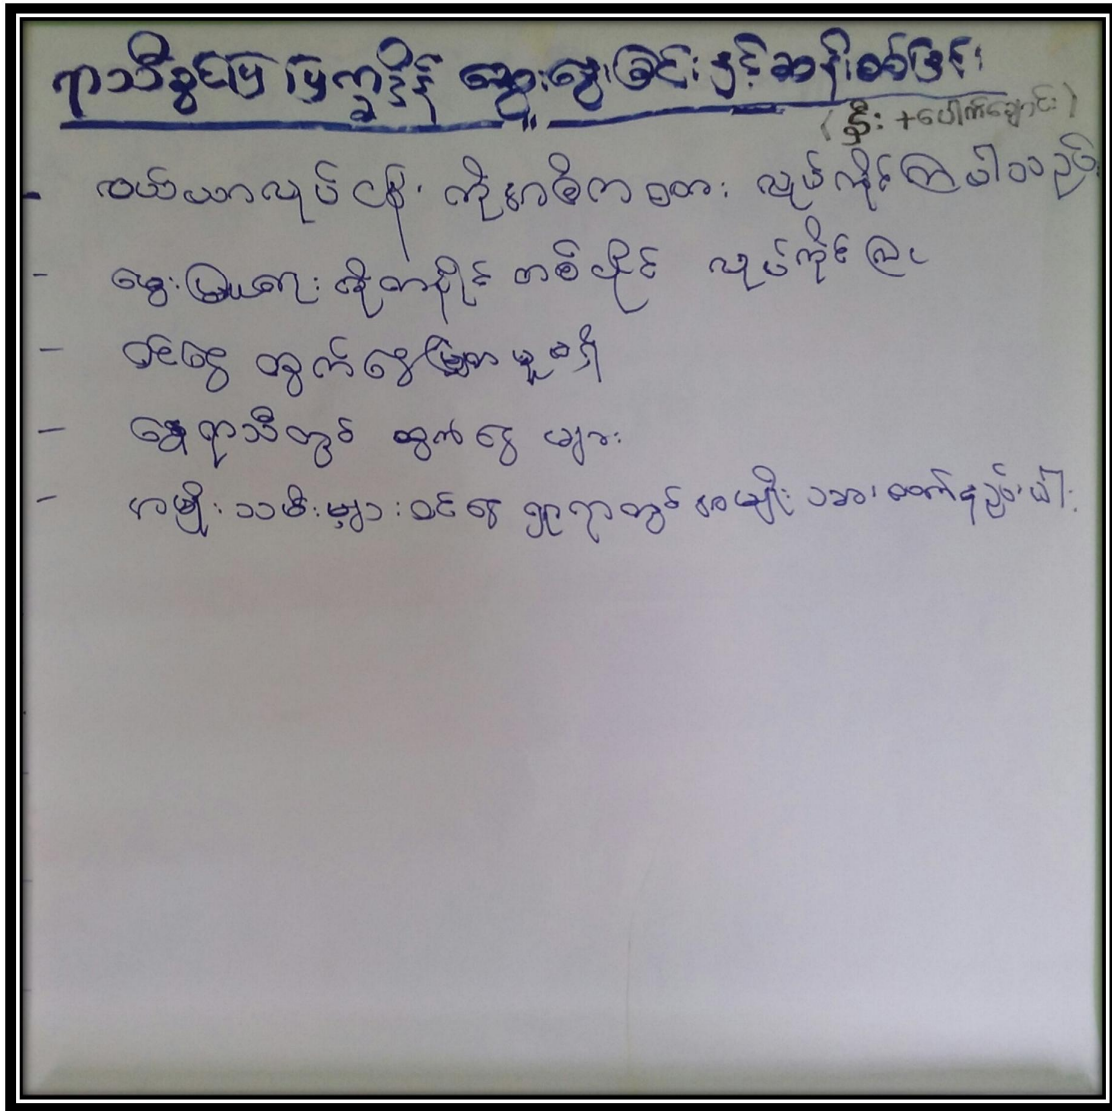 ရာသီခွင်ပြ ပြက္ခဒိန် ဆွေးနွေးခြင်းနှင့်ဆန်းစစ်ခြင်း
(နှီး + ပေါက်ချောင်း)
- လယ်ယာလုပ်ငန်း ကိုအဓိကထား လုပ်ကိုင်ကြပါသည်
- မွေးမြူရေး ကိုတနိုင် တစ်ပိုင် လုပ်ကိုင်ကြ
- ဝင်ငွေ ထွက်ငွေမျှတမှုမရှိ
- နွေရာသီတွင် ထွက်ငွေ များ
- အမျိုးသမီးများ ဝင်ငွေရှာရာတွင် အမျိုးသားထက်နည်းပါး